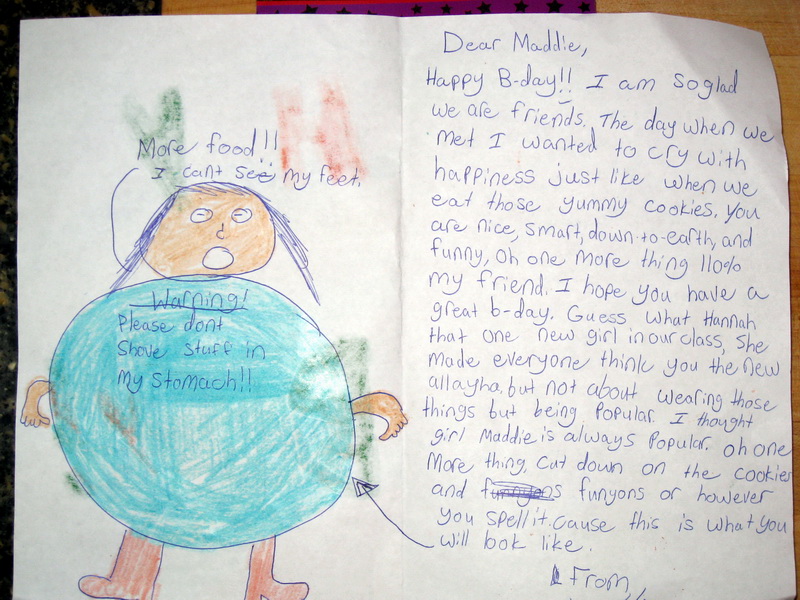 More food!!
I cant see my feet.
Warning!
Please dont
Shove stuff in
My stomach!!
Dear Maddie,
Happy B-day!! I am so glad
we are friends. The day when we
met I wanted to cry with
happiness just like when we
eat those yummy cookies. You
are nice, smart, down-to-earth, and
funny, oh one more thing 110%
my friend. I hope you have a
great b-day. Guess what Hannah
that one new girl in our class, she
made everyone think you the new
allayha. but not about wearing those
things but being Popular. I thought
girl Maddie is always Popular. oh one
More thing, cut down on the cookies
and funyons or however
you spell it. cause this is what you
will look like.
From,